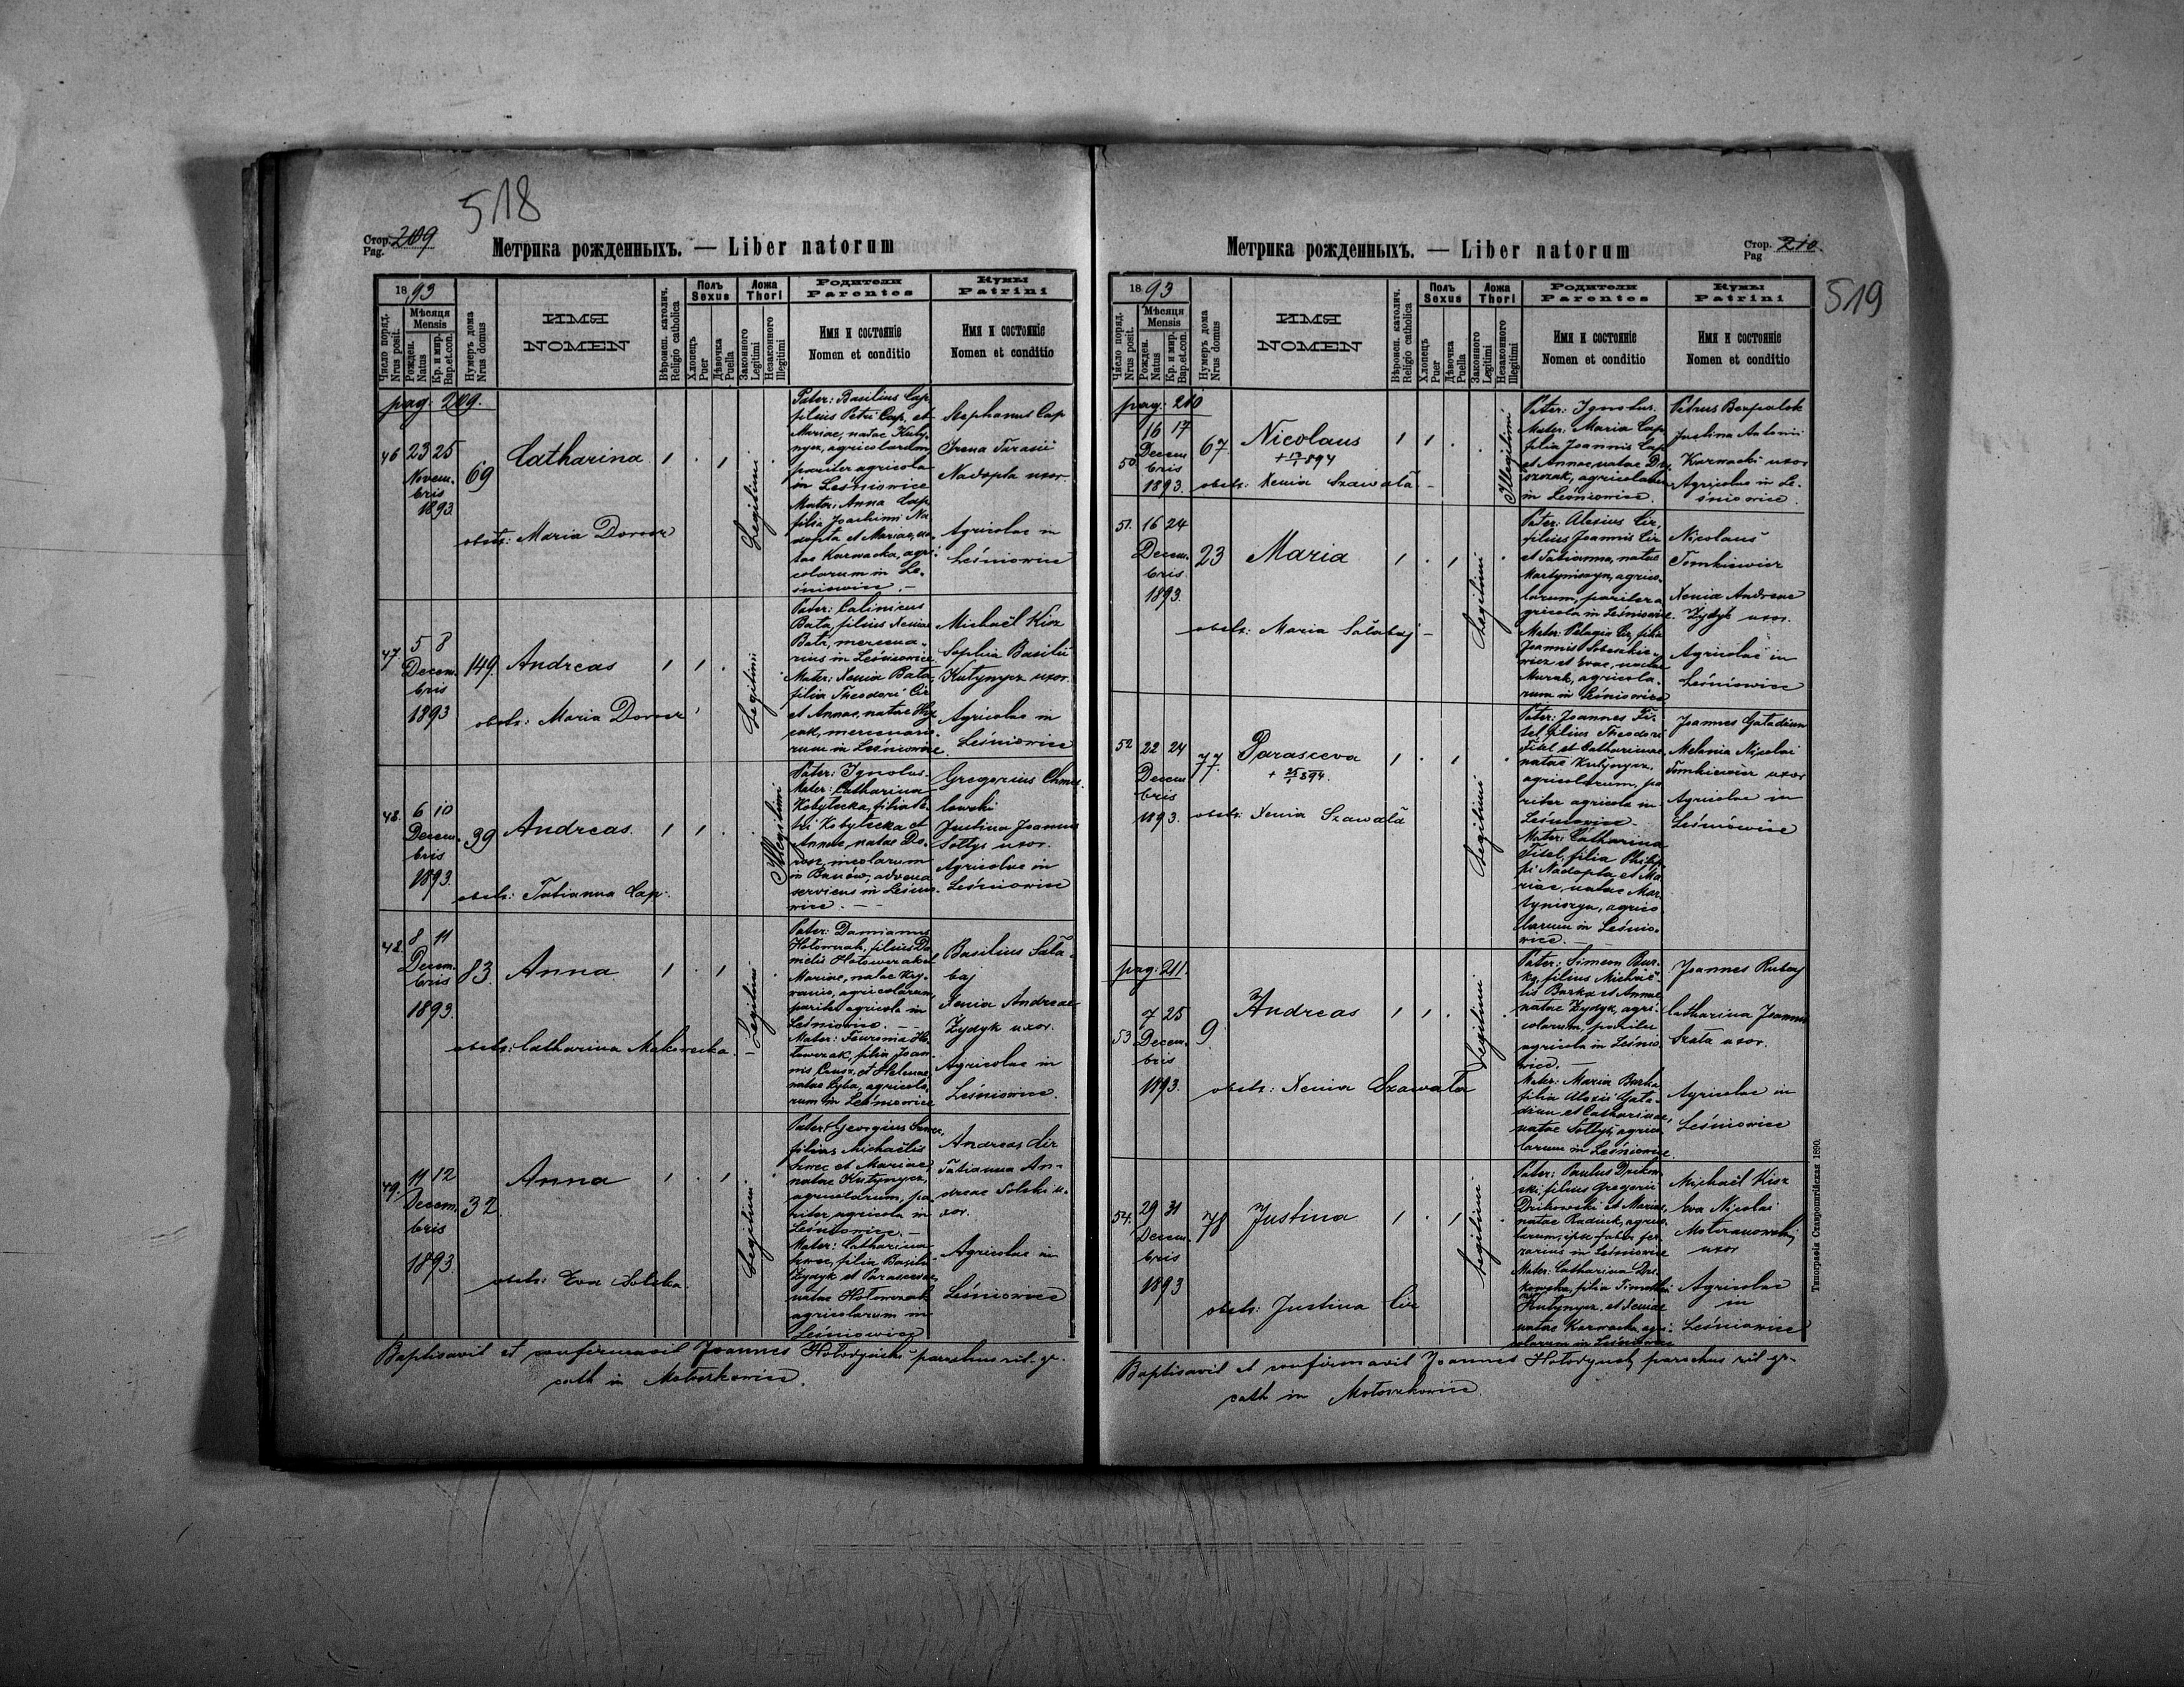 518
Стор. 209
Pag.
Метрика рожденныхъ. — Liber natorum
1893
Мѣсяця
Mensis
Число поряд.
Nrus posit.
Рожден.
Natus
Кр. и мир.
Bap.et.con.
Нумеръ дома
Nrus domus
ИМЯ
NOMEN
Вѣроисп. католич.
Religio catholica
Полъ
Sexus
Хлопець
Puer
Дѣвочка
Puella
Ложа
Thori
Законного
Legitimi
Незаконного
Illegitimi
Родители
Parentes
Имя и состояніе
Nomen et conditio
Кумы
Patrini
Имя и состояніе
Nomen et conditio
pag. 209.
46 23 25
Novem-
bris
1893
69
Catharina
obstr: Maria
Legitimi
Pater: Basilius Cap
filius Petri Cap, et
Mariae, natae Kuty-
nycz, agricolarum
pariter agricola
in Leśniowice
Mater: Anna Cap
filia Joachimi Na-
dopta et Mariae, na-
tae Karwacka, agri-
colarum in Le-
śniowice.
Stephanus Cap
Irena Tarasii
Nadopta uxor.
Agricolae in
Leśniowice
47 5 8
Decem-
bris
1893
149.
Andreas
obstr: Maria
Legitimi
Pater: Calinicus
Bata, filius Xeniae
Bata, mercena-
rius in Leśniowice
Mater: Xenia Bata,
filia Theodori Cir
et Annae, natae
mercenario-
rum in Leśniowice.
Michaël Kisz
Sophia Basilii
Kutynycz uxor.
Agricolae in
Leśniowice
48. 6 10
Decem-
bris
1893.
39
Andreas.
obstr: Tatianna Cap.
Illegitimi
Pater: Ignotus.
Mater: Catharina
Kobyłecka, filia
Kobyłecka et
Annae, natae Do-
rosz, incolarum
in advena
serviens in Leśnio-
wice.
Gregorius Chmie-
lowski
Justina Joannis
Sołtys uxor.
Agricolae in
Leśniowice
8 11
Decem-
bris
1893.
83.
Anna
obstr: Catharina
Legitimi
Pater: Damianus
Hołowczak, filius Da-
nielis Hołowczak et
Mariae, natae
agricolarum,
pariter agricola in
Leśniowice.
Mater: Fevronia Ho-
łowczak, filia Joan-
nis et Helenae,
natae Cyba, agricola-
rum in Leśniowice
Basilius Sała-
baj
Xenia Andreae
Zydyk uxor.
Agricolae in
Leśniowice.
49. 11 12
Decem-
bris
1893.
32.
Anna
obstr: Eva Solska.
Legitimi
Pater: Georgius Szwec,
filius Michaëlis
Szwec et Mariae,
natae Kutynycz,
agricolarum, pa-
riter agricola in
Leśniowice.
Mater: Catharina
Szwec, filia Basilii
Zydyk et Parascevae,
natae Hołowczak
agricolarum in
Leśniowice
Andreas Cir
Tatianna An-
dreae Solski u-
xor.
Agricolae in
Leśniowice
Baptisavit et confirmavit Joannes parochus rit. gr.
cath in Mołoszkowice.
Метрика рожденныхъ. — Liber natorum
Стор. 210.
Pag
519
1893
Мѣсяця
Mensis
Число поряд.
Nrus posit.
Рожден.
Natus
Кр. и мир.
Bap.et.con.
Нумеръ дома
Nrus domus
ИМЯ
NOMEN
Вѣроисп. католич.
Religio catholica
Полъ
Sexus
Хлопець
Puer
Дѣвочка
Puella
Ложа
Thori
Законного
Legitimi
Незаконного
Illegitimi
Родители
Parentes
Имя и состояніе
Nomen et conditio
Кумы
Patrini
Имя и состояніе
Nomen et conditio
pag. 210
50 16 17
Decem-
bris
1893.
67.
Nicolaus
obstr: Xenia Szawała
Illegitimi
Pater: Ignotus.
Mater: Maria Cap
filia Joannis Cap
et Annae, natae
agricolarum
in Leśniowice.
Petrus Bezpałok
Justina Antonii
Karwacki uxor
Agricolae in Le-
śniowice.
51. 16 24
Decem-
bris
1893.
23
Maria
obstr: Maria Sałabaj
Legitimi
Pater: Alexius Cir,
filius Joannis Cir
et Tatianna, natae
Martyniszyn, agrico-
larum, pariter a-
gricola in Leśniowice.
Mater: Pelagia Cir, filia
Joannis
et Evae, natae
Murak, agricola-
rum in Leśniowice
Nicolaus
Tomkiewicz
Xenia Andreae
Zydyk uxor.
Agricolae in
Leśniowice
52 22 24
Decem-
bris
1893.
77.
Parasceva
obstr: Xenia Szawała
Legitimi
Pater: Joannes Fi-
tel, filius Theodori
Fitel et Catharinae,
natae Kutynycz,
agricolarum, pa-
riter agricola in
Leśniowice.
Mater: Catharina
Fitel, filia Philip-
pi Nadopta et Ma-
riae, natae Mar-
tyniszyn, agrico-
larum in Leśnio-
wice.
Joannes Gaładiun
Melania Nicolai
Tomkiewicz uxor
Agricolae in
Leśniowice
pag. 211.
53 7 25
Decem-
bris
1893.
9.
Andreas
obstr: Xenia Szawała
Legitimi
Pater: Simeon Bur-
ka, filius Michaë-
lis Burka et Annae
natae Zydyk, agri-
colarum, pariter
agricola in Leśnio-
wice.
Mater: Maria Burka
filia Alexii Gała-
diun et Catharinae,
natae Sołtys, agrico-
larum in Leśniowice.
Joannes Rubaj
Catharina Joannis
Szata uxor.
Agricolae in
Leśniowice
54. 29 31
Decem-
bris
1893
78
Justina
obstr: Justina Cir
Legitimi
Pater: Paulus Drikow-
ski, filius Gregorii
Drikowski et Mariae,
natae agrico-
larum, ipse faber fer-
rarius in Leśniowice
Mater: Catharina Dri-
kowska, filia Timothei
Kutynycz, et Xeniae
natae Karwacka, agri-
colarum in Leśniowice
Michaël Kisz
Eva Nicolai
uxor
Agricolae
in
Leśniowice
Baptisavit et confirmavit Joannes parochus rit gr.
cath in Mołoszkowice.
Типографія Ставропигійская 1890.